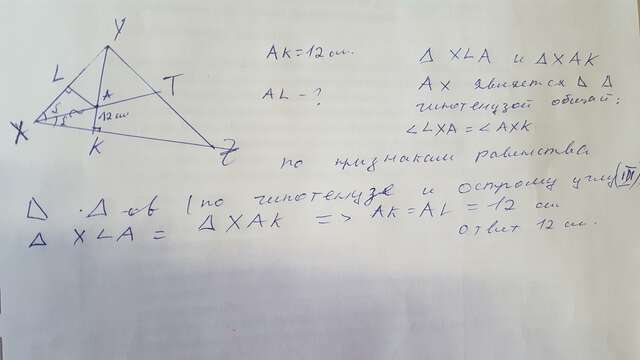 Y
L
A
T
X
12 см
K
Z
AK = 12 см.
AL - ?
Δ XLA и Δ XAK
AX является Δ Δ
гипотенузой общей;
∠LXA = ∠AXK
по признакам равенства
Δ-ов (по гипотенузе и острому углу (III)
Δ XLA = Δ XAK => AK = AL = 12 см
ответ 12 см.